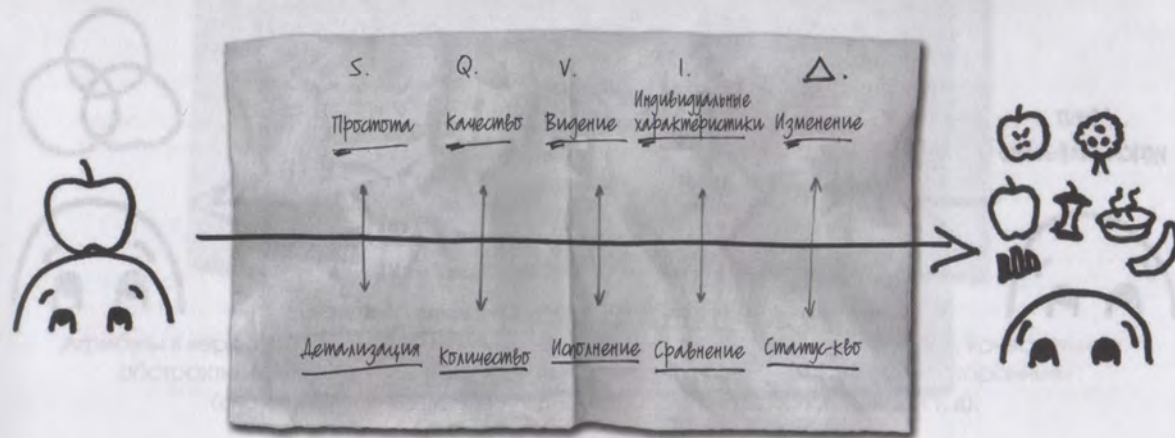 S. Q. V. I. Δ.
Простота Качество Видение Индивидуальные характеристики Изменение
Детализация Количество Исполнение Сравнение Статус-кво